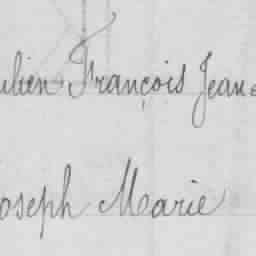 ulien François Jean
oseph Marie